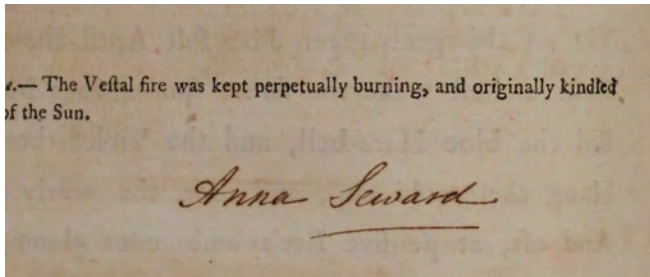 .— The Veſtal fire was kept perpetually burning, and originally kindled
of the Sun.
Anna Seward